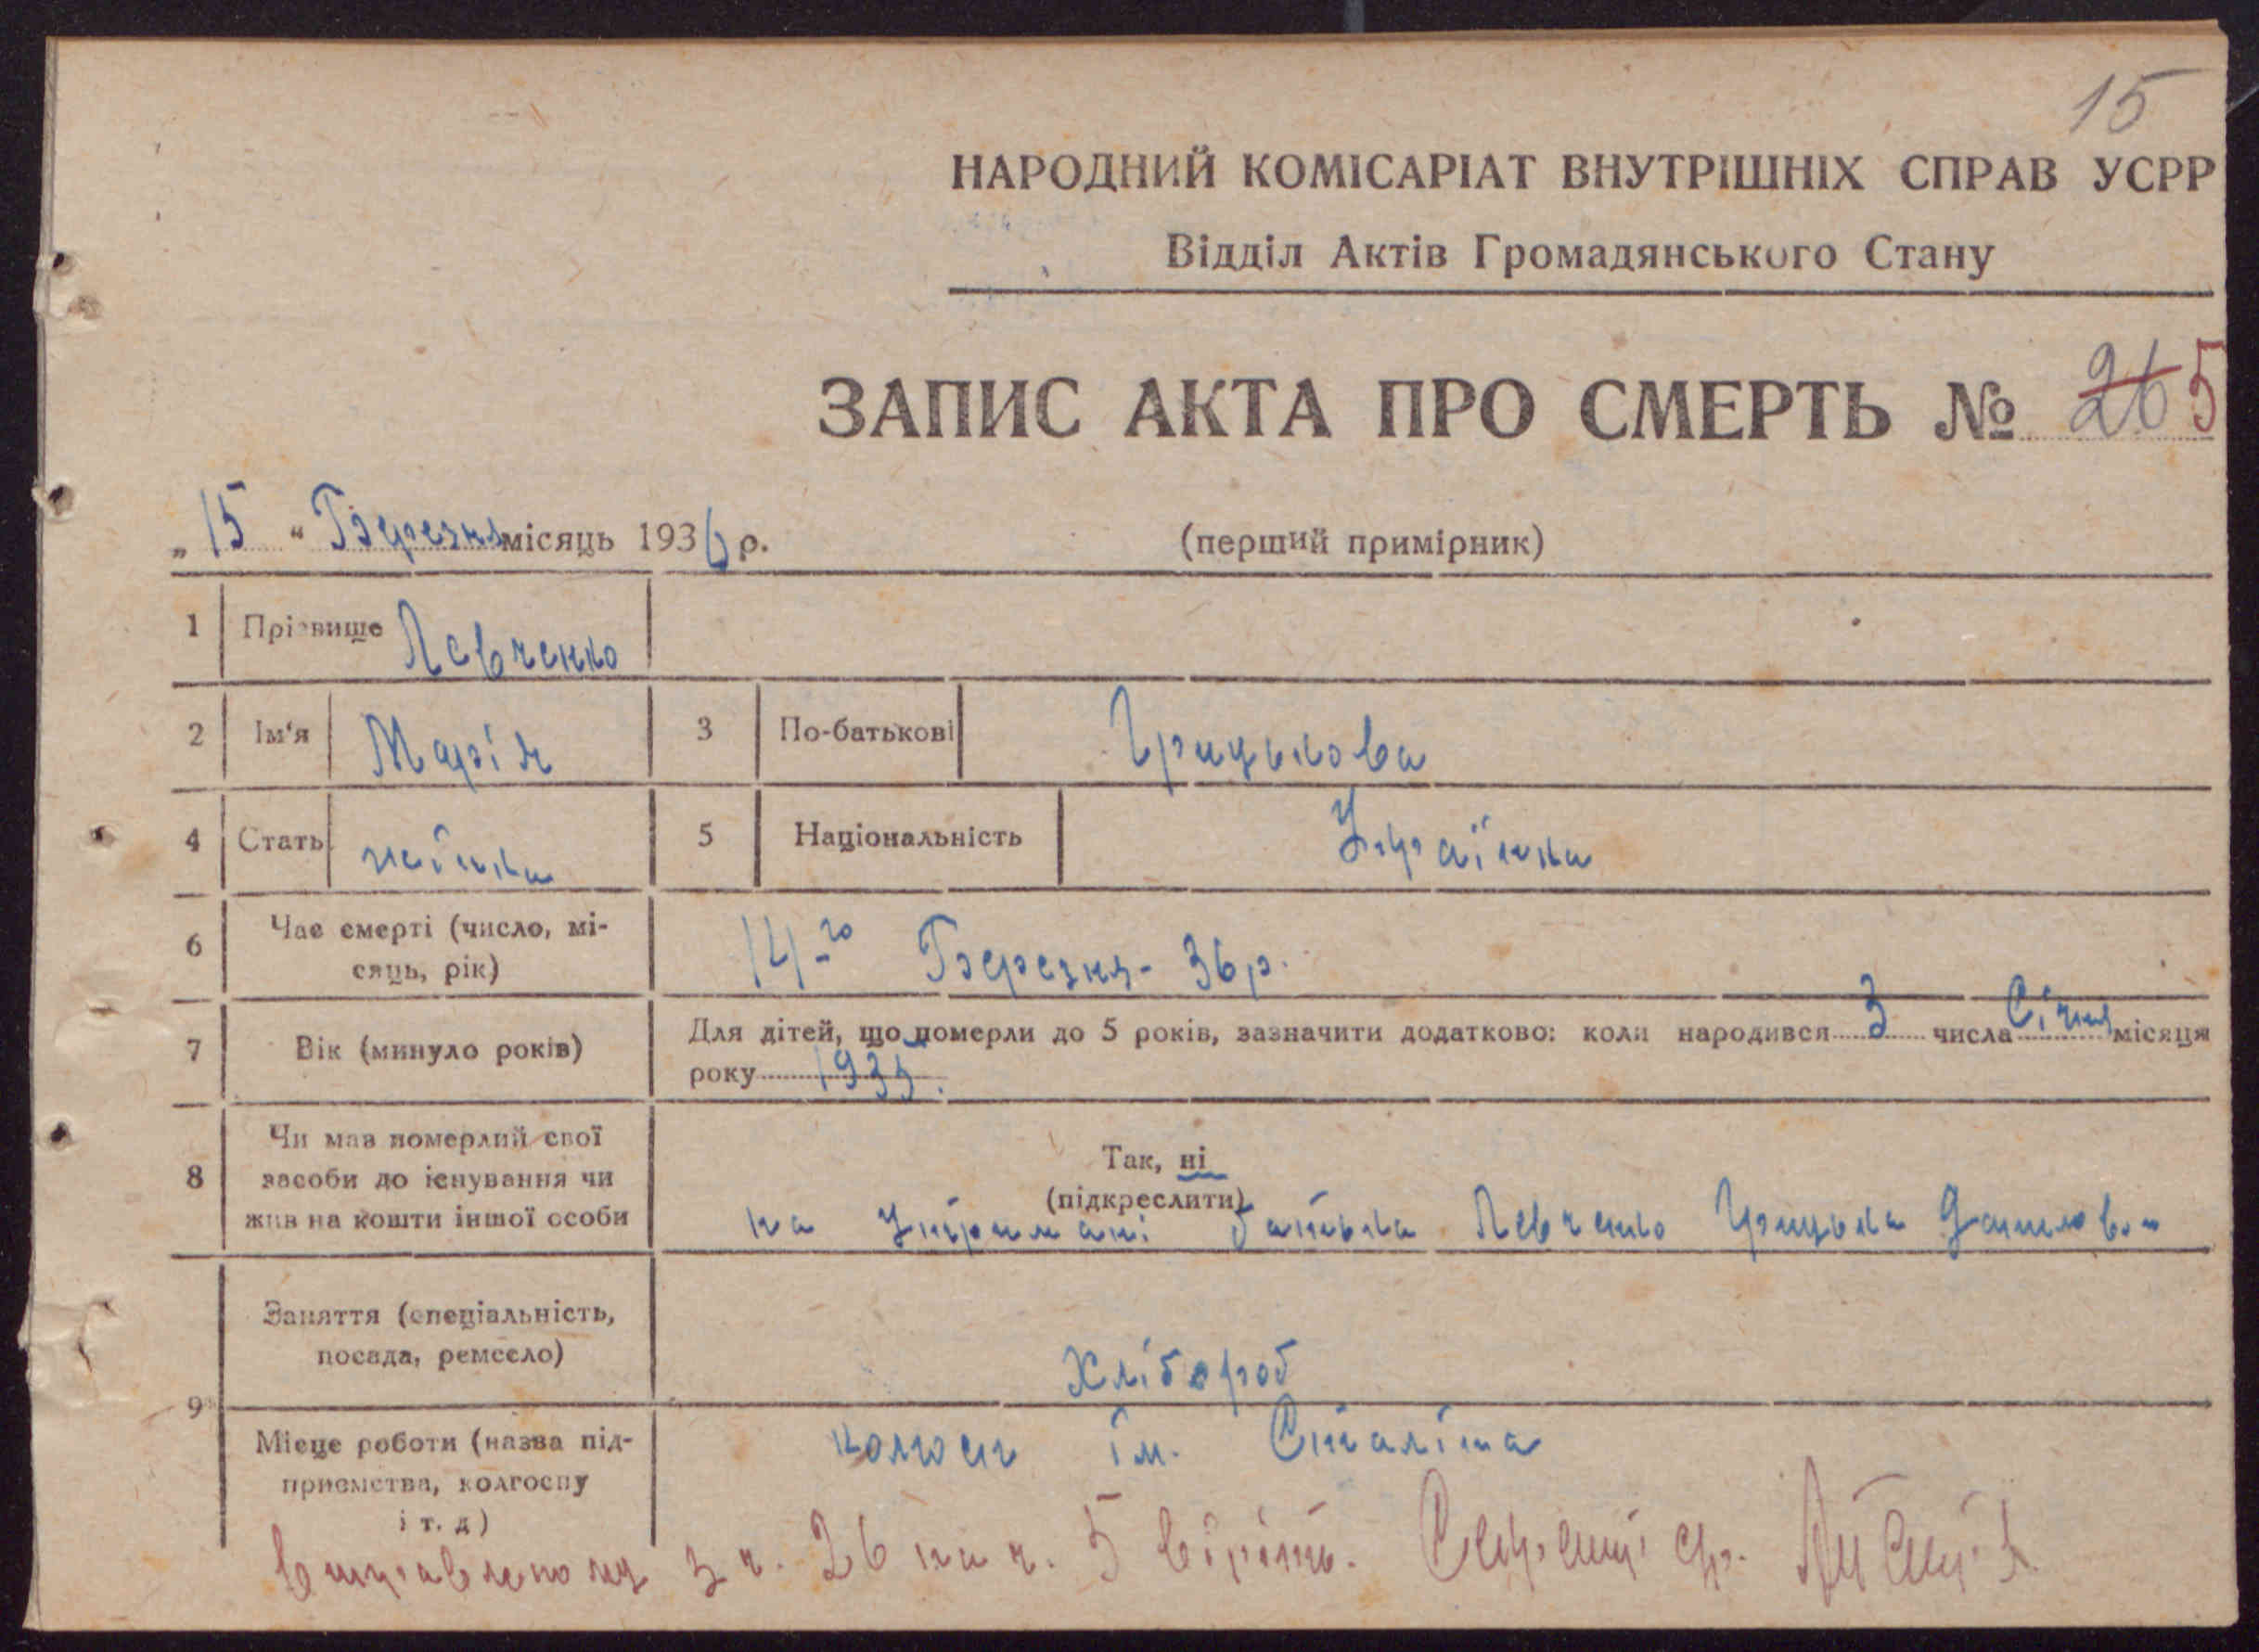 15
НАРОДНИЙ КОМІСАРІАТ ВНУТРІШНІХ СПРАВ УСРР
Відділ Актів Громадянського Стану
ЗАПИС АКТА ПРО СМЕРТЬ № 26 5
„ 15 “ Березня місяць 1936 р. (перший примірник)
1 Прізвище Левченко
2 Ім'я Марія 3 По-батькові Грицькова
4 Стать жінка 5 Національність Українка
6 Час смерті (число, мі-
сяць, рік) 14-го Березня - 36 р.
7 Вік (минуло років) Для дітей, що померли до 5 років, зазначити додатково: коли народився 3 числа Січня місяця
року 1935.
8 Чи мав померлий свої
засоби до існування чи
жив на кошти іншої особи
Так, ні
(підкреслити)
на утримані батька Левченко Грицька
9 Заняття (спеціальність,
посада, ремесло) Хлібороб
Місце роботи (назва під-
приємства, колгоспу
і т. д) колгосп ім. Сталіна
з ч. 26 на ч. 5 вірить.